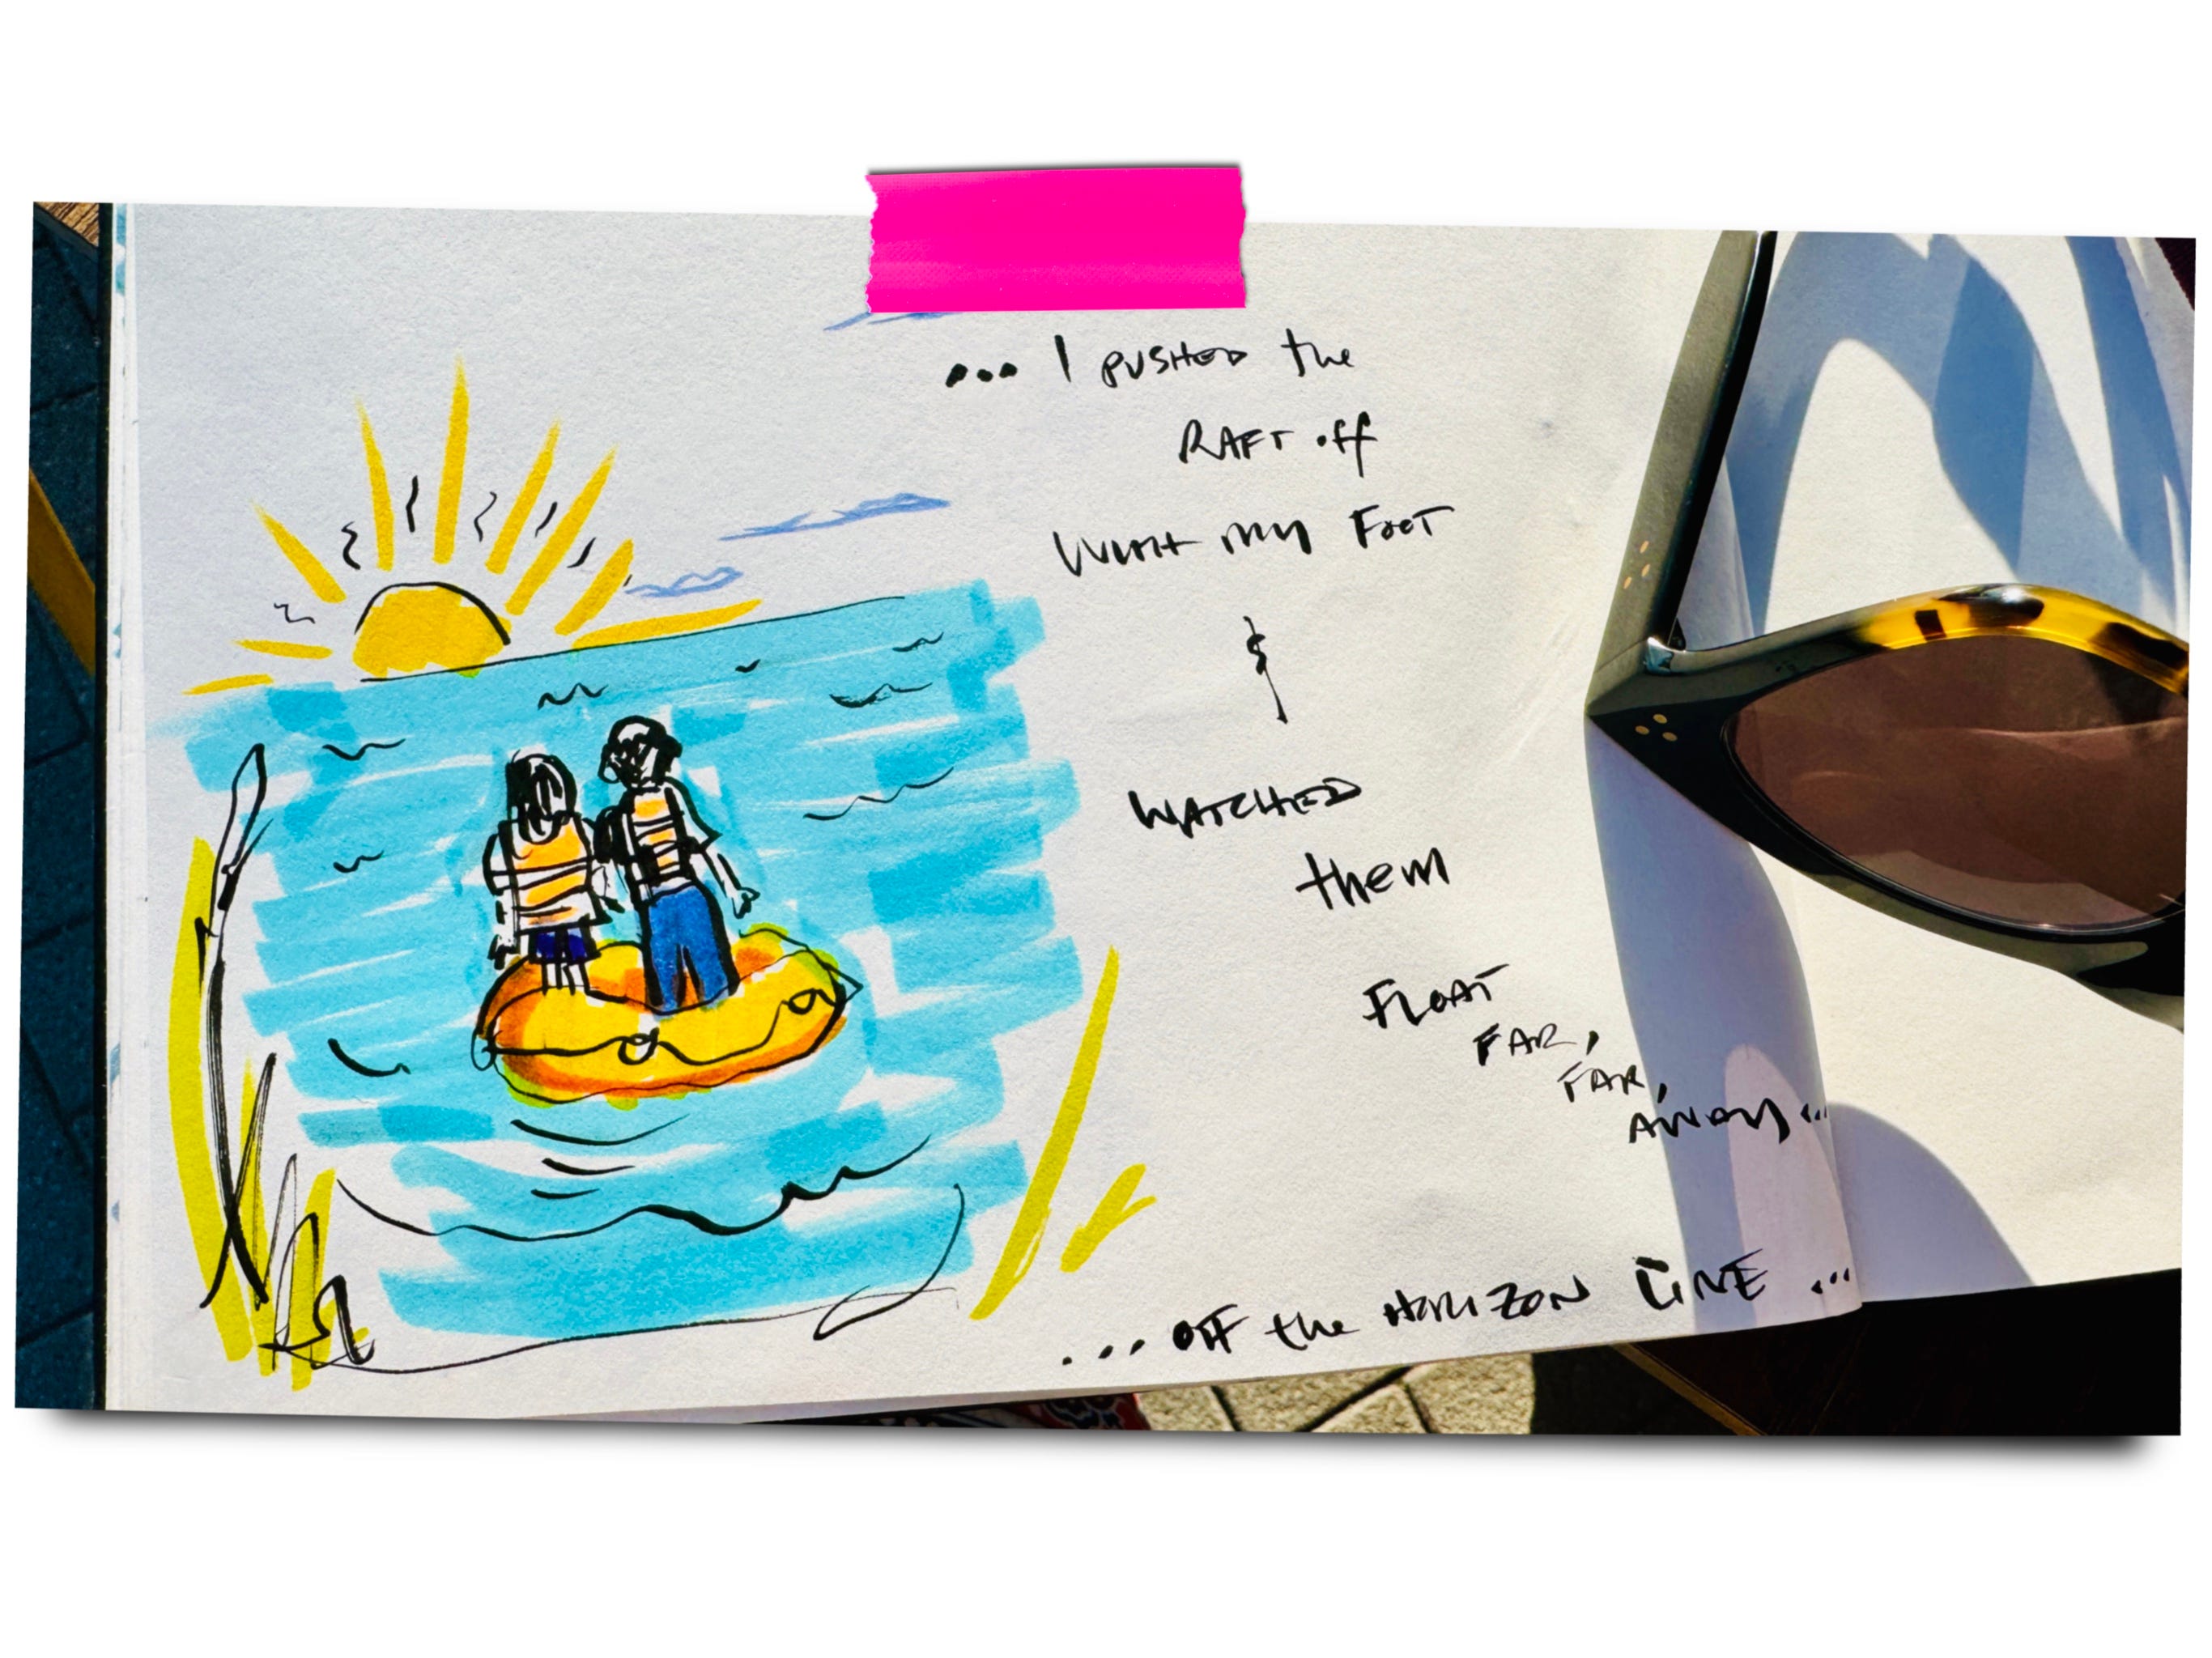 ... I PUSHED the
RAFT off
WITH MY FOOT
&
WATCHED
them
FLOAT
FAR,
FAR,
AWAY...
... OFF the HORIZON LINE ...